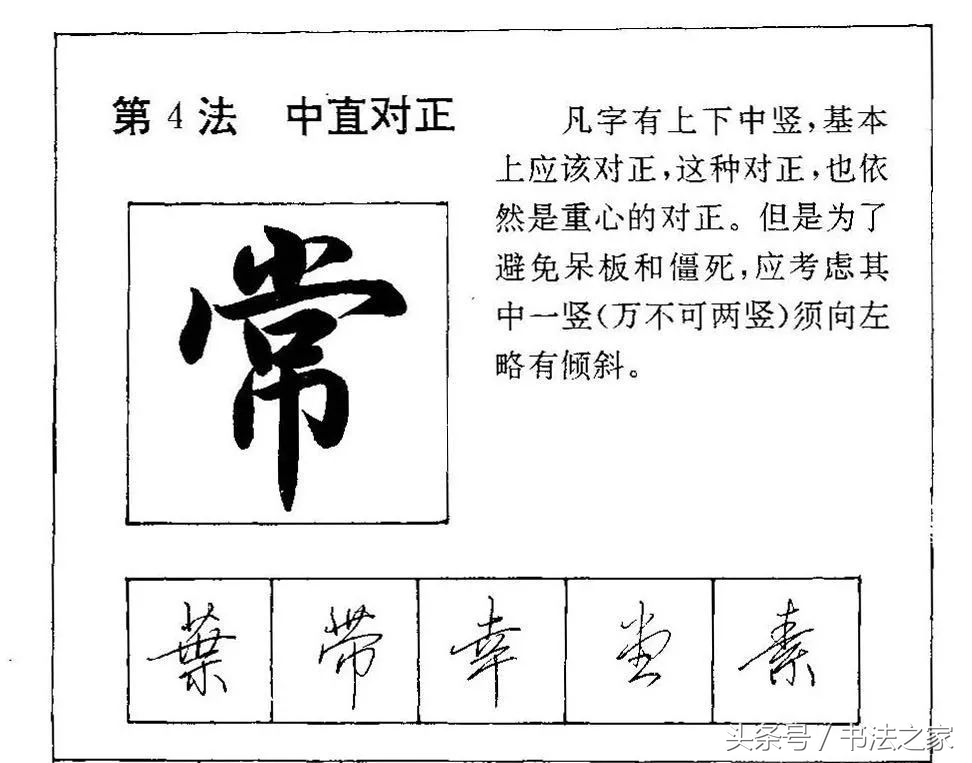 第4法 中直对正
凡字有上下中竖,基本
上应该对正,这种对正,也依
然是重心的对正。但是为了
避免呆板和僵死,应考虑其
中一竖(万不可两竖)须向左
略有倾斜。
常
葉 带 幸 堂 素
头条号/书法之家